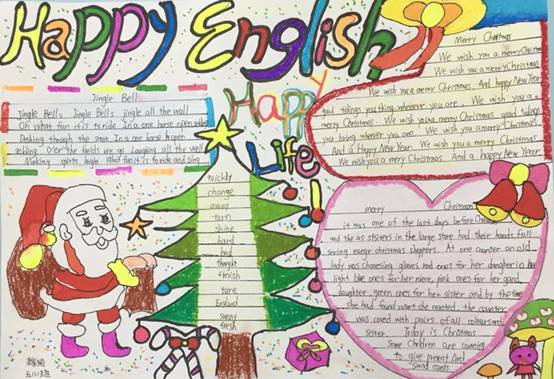 Happy English
Happy
Life!
Jingle Bell
Jingle Bells Jingle Bells jingle all the wall
Oh What fun it's to ride In a one horse open
Deshing though the snow In a one horse hopen
o'er the fields we go laughing all the wall
Making spirts What fun it is to ride and sing
quickly
change
away
turn
shine
hard
find
thought
finish
ture
England
sunny
fresh
Merry Christmas
We wish you a merry Christmas
We wish you a merry Christmas
We wish you a merry Christmas. And happy New Year
good tidings you thing wherever you are. We wish you a
merry Christmas We wish you a merry Christmas good tidings
you bring wherever you are. We wish you a merry Christmas
And a Happy New Year We wish you a merry Christmas
We wish you a merry Christmas. And a happy New Year
merry Christmas
it was one of the last days before
and the as sisters in the large store had their hands full
serving eager christmas shoppers. At one counter an old
lady was choosing gloves red ones for her daugher in
light blue ones for her niece, pink ones for her gand
daughter green ones for her sister and by the time
she had found want she wanted. the counter
was coved with pairs of all colours
Today is Christmas
Some children are coming
to give present And
Sand cards